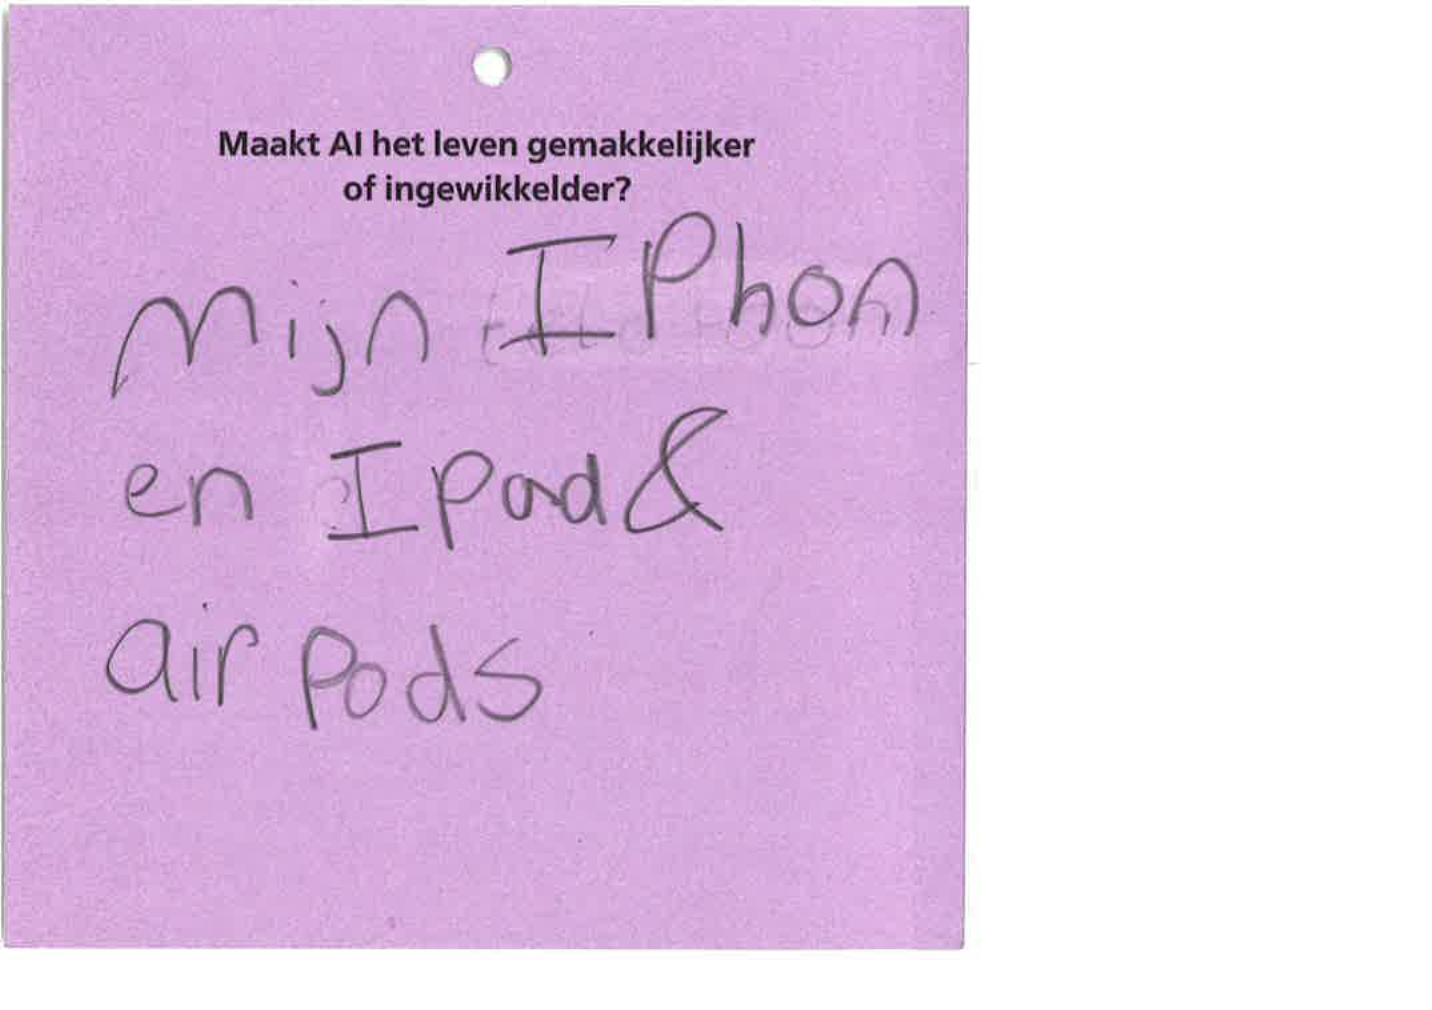 Maakt AI het leven gemakkelijker
of ingewikkelder?
Mijn IPhon
en Ipad &
air Pods